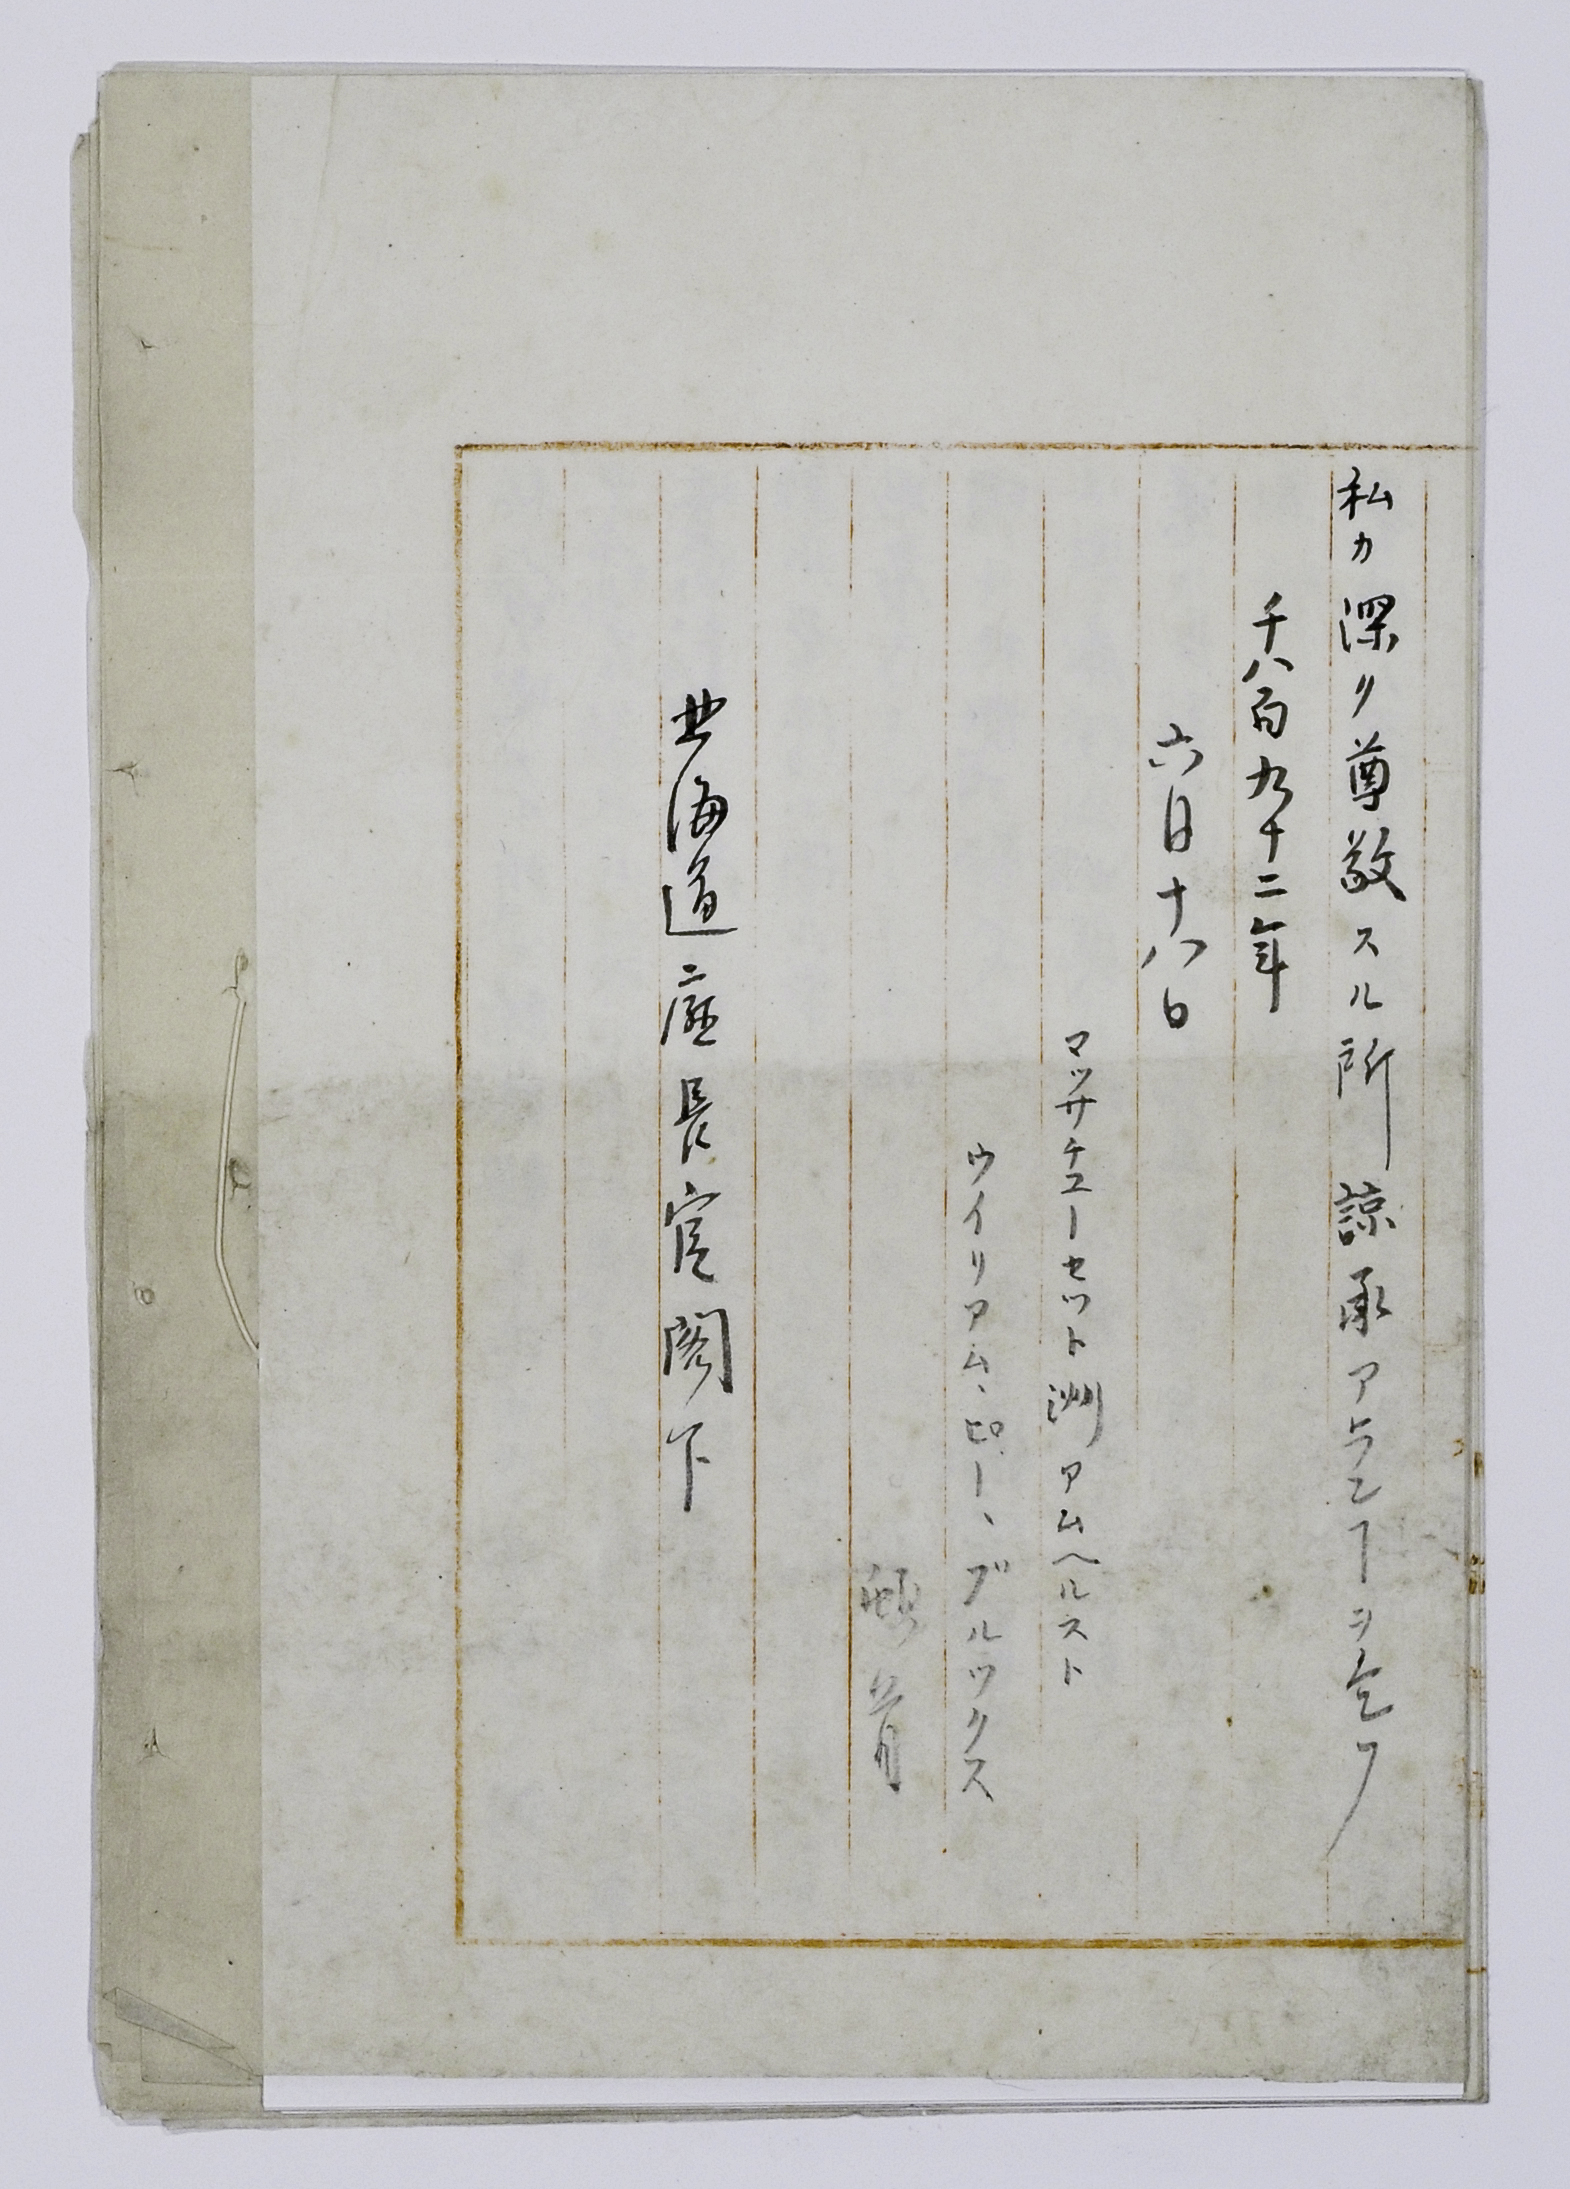 私カ深ク尊敬スル所諒承アランヿヲ乞フ
千八百九十二年
六月十八日
マッサチユーセット洲アムヘルスト
ウイリアム、ピー、ブルックス
頓首
北海道庁長官閣下